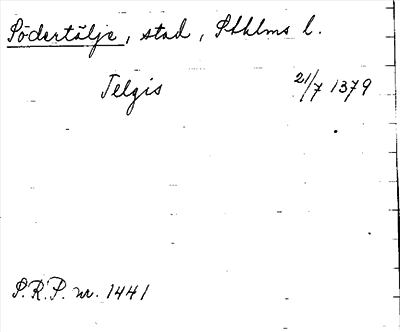 Södertälje, stad, Sthlms l.
Telgis 21/7 1379
S.R.P. nr. 1441